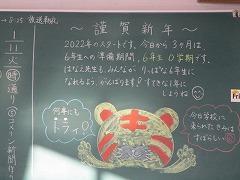 ～謹賀新年～
2022年のスタートです。今日から3ヶ月は
6年生への準備期間、6年生0学期です。
はなえ先生も、みんなが りっぱな6年生に
なれるよう、がんばります。すてきな1年に
しようね
何事にも
トライ!
今日学校に
来られたきみは
すばらしい
+8:25 放送朝礼
1/11
火
時
通り